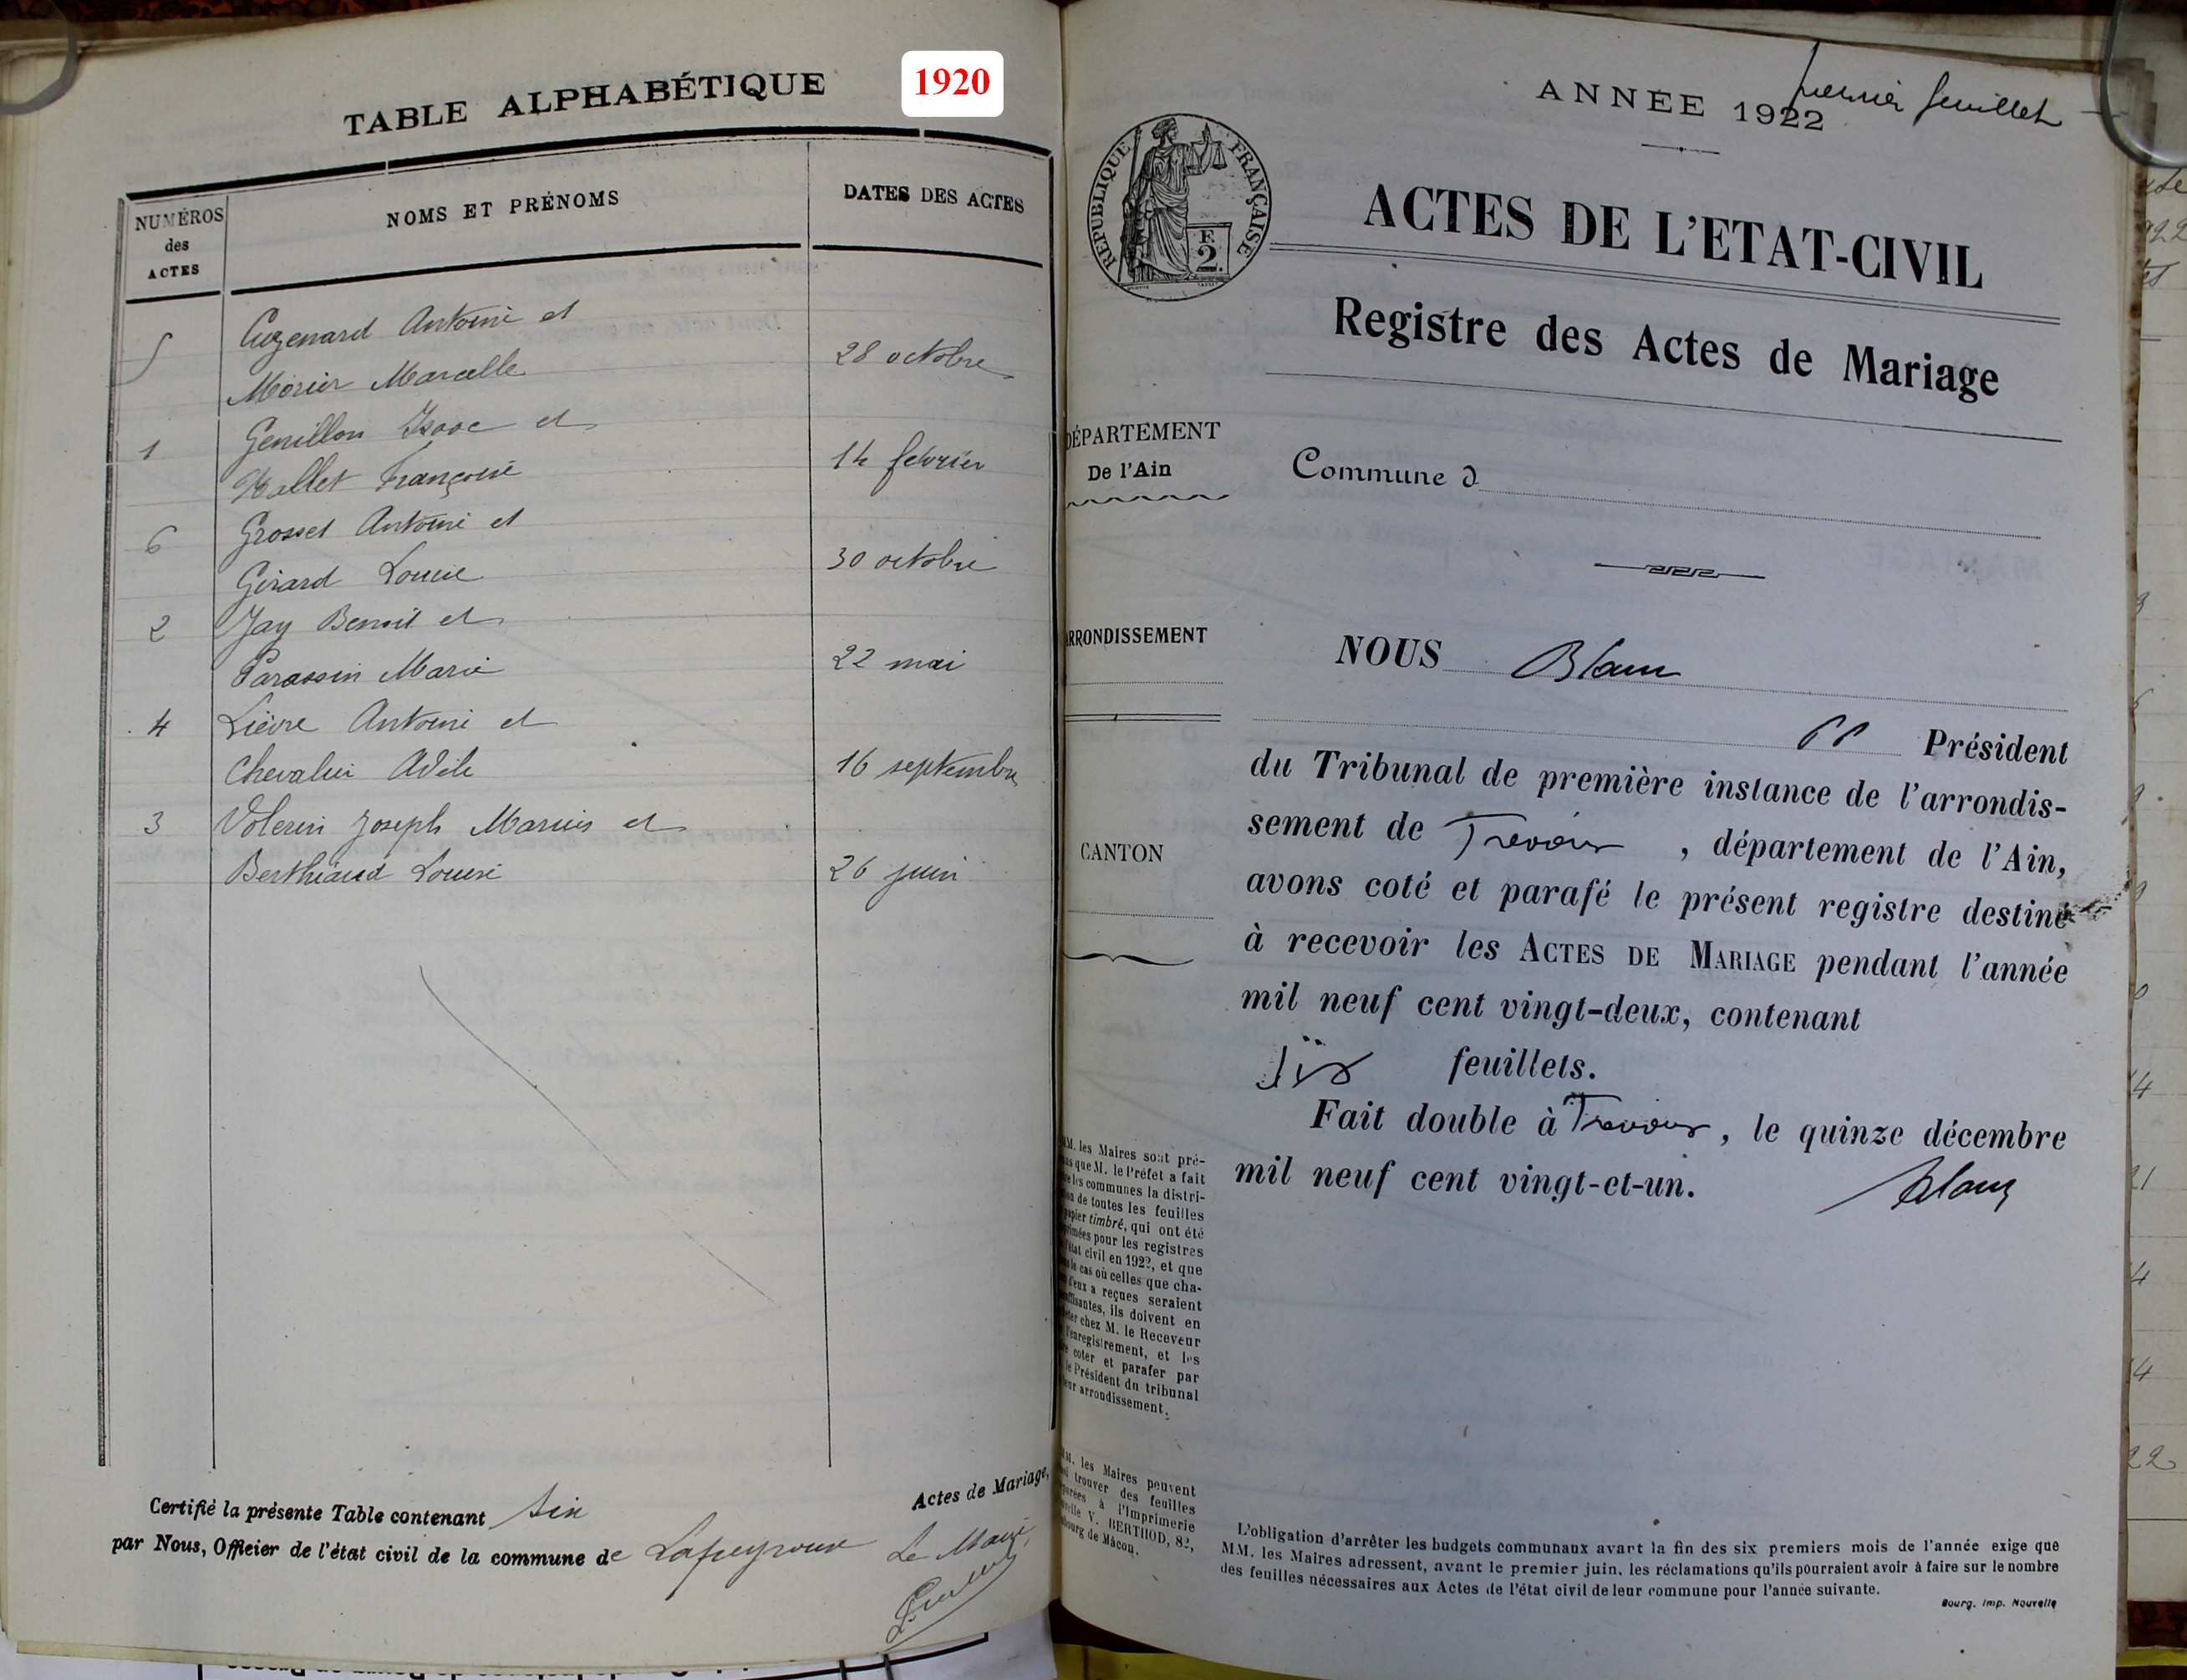 TABLE ALPHABÉTIQUE
1920
NUMÉROS
des
ACTES
NOMS ET PRÉNOMS
DATES DES ACTES
5
Cuzenard Antoine et
Morier Marcelle
28 octobre
1
Genillon Isaac et
Françoise
14 février
6
Grosset Antoine et
Girard Louise
30 octobre
2
Jay Benoit et
Parassin Marie
22 mai
4
Lièvre Antoine et
Chevalier Adèle
16 septembre
3
Volerin Joseph Marius et
Berthiaud Louise
26 juin
Certifié la présente Table contenant six
Actes de Mariage,
par Nous, Officier de l'état civil de la commune de Lapeyrouse
Le Maire,
premier feuillet
ANNÉE 1922
RÉPUBLIQUE FRANÇAISE
F
2.
ACTES DE L'ETAT-CIVIL
Registre des Actes de Mariage
DÉPARTEMENT
De l'Ain
Commune d
ARRONDISSEMENT
CANTON
NOUS Blanc
Président
du Tribunal de première instance de l'arrondis-
sement de Trévoux , département de l'Ain,
avons coté et parafé le présent registre destiné
à recevoir les ACTES DE MARIAGE pendant l'année
mil neuf cent vingt-deux, contenant
six feuillets.
Fait double à Trévoux, le quinze décembre
mil neuf cent vingt-et-un.
Blanc
MM. les Maires sont pré-
que M. le Préfet a fait
les communes la distri-
de toutes les feuilles
papier timbré, qui ont été
pour les registres
état civil en 1922, et que
le cas où celles que cha-
d'eux a reçues seraient
ils doivent en
chez M. le Receveur
l'enregistrement, et les
coter et parafer par
le Président du tribunal
arrondissement.
MM. les Maires peuvent
trouver des feuilles
à l'Imprimerie
V. BERTHOD, 82,
de Mâcon.
L'obligation d'arrêter les budgets communaux avant la fin des six premiers mois de l'année exige que
MM. les Maires adressent, avant le premier juin, les réclamations qu'ils pourraient avoir à faire sur le nombre
des feuilles nécessaires aux Actes de l'état civil de leur commune pour l'année suivante.
Bourg. Imp. Nouvelle